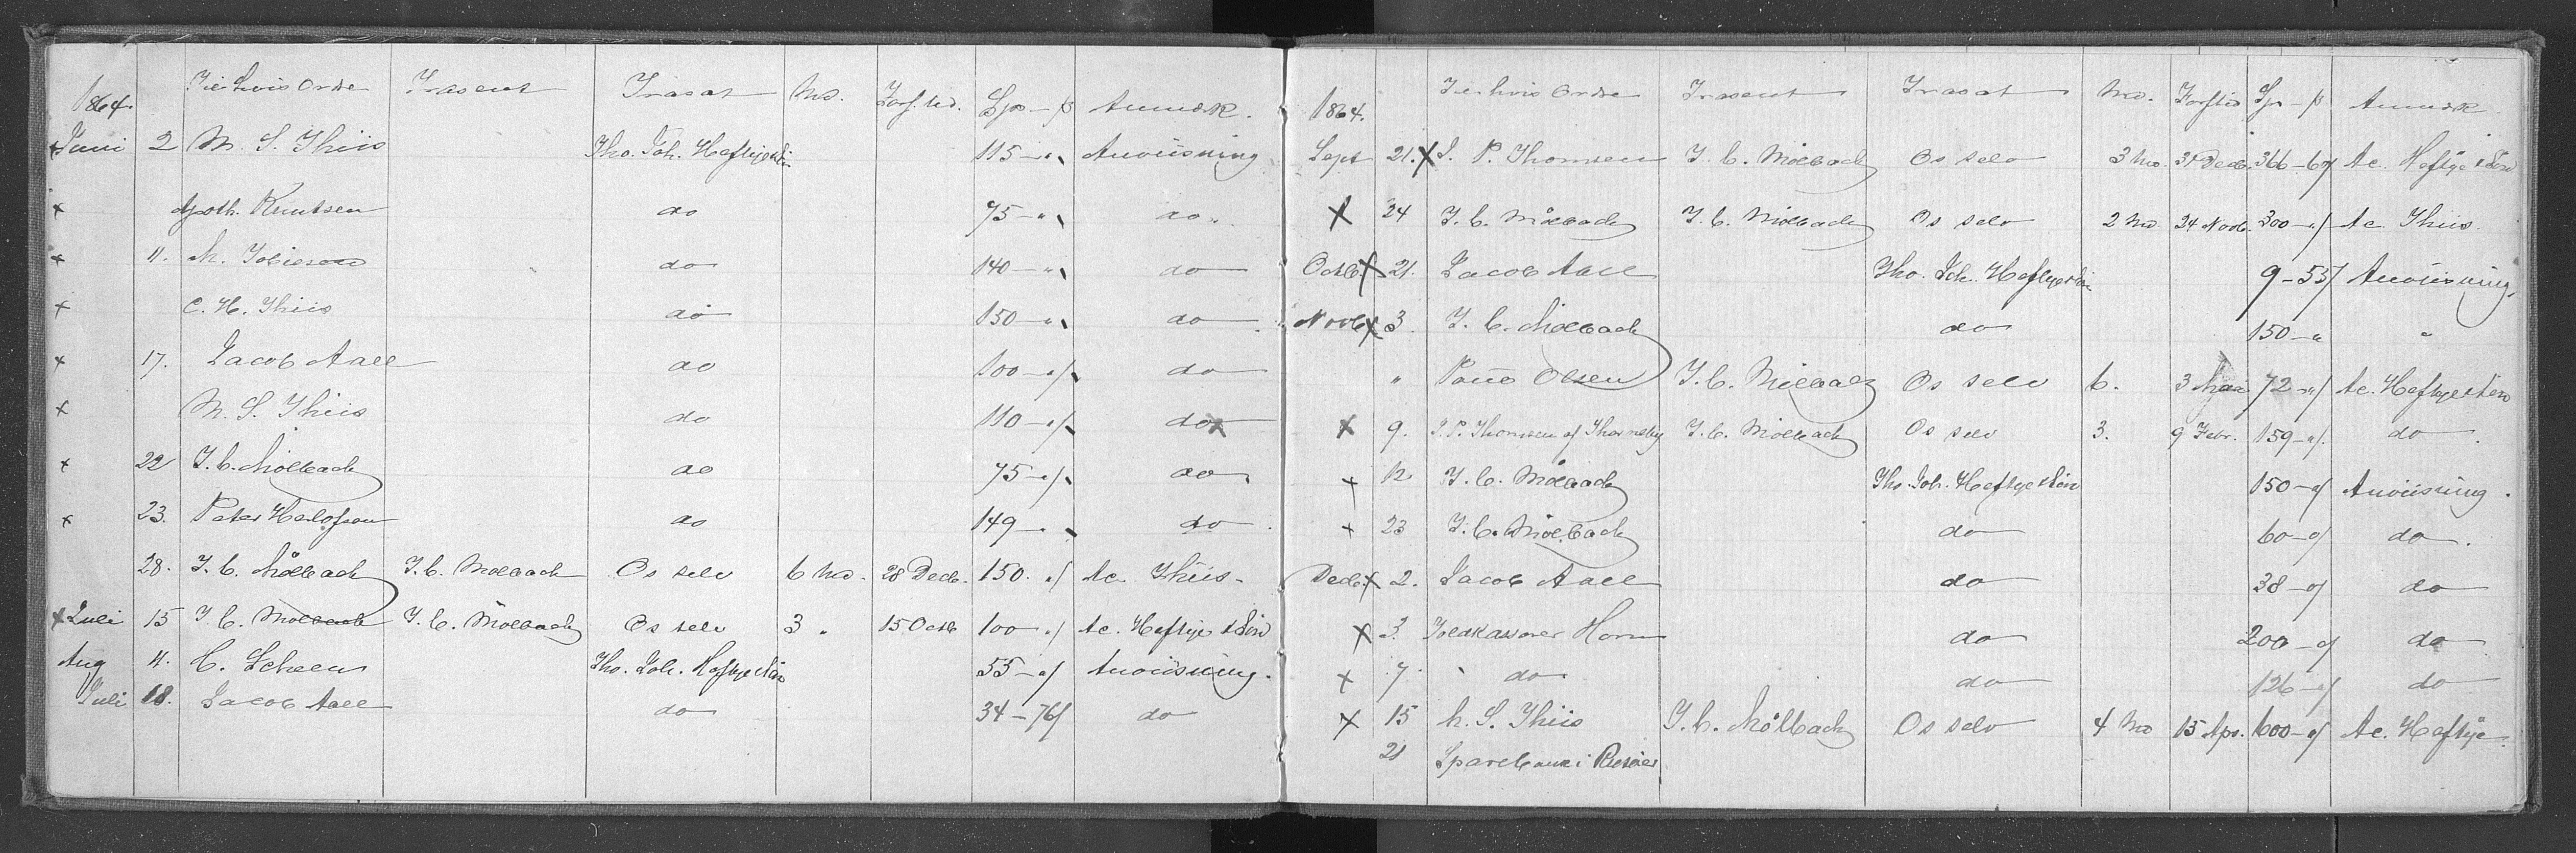 1864. Til hvis Ordre Trasent Trasat Md. Forf. tid. Sp - ß Anmærk.
x Juni 2 M. S. Thiis Tho. Joh. Heftye & Søn 115 - " Anviisning
x Apoth. Knutsen do 75 - " do "
x 11. M. Tobiesen do 140 - " do
x C. H. Thiis do 150 - " do
x 17. Jacob Aall do 100 - " do
x M. S. Thiis do 110 - " do x
x 22 J. C. Mølbach do 75 - " do
x 23. Peter Herlofsen do 149 - " do
28. J. C. Mølbach J. C. Mølbach Os selv 6 Md. 28 Decb. 150. " Ac. Thiis.
x Juli 15 J. C. Mølbach J. C. Mølbach Os selv 3 " 15 Octb 100 " Ac. Heftye & Søn
Aug 11. C. Scheen Tho. Joh. Heftye & Søn 55 - " Anviisning.
Juli 18. Jacob Aall do 34 - 76 do
1864. Til hvis Ordre Trasent Trasat Md. Forf tid Sp - ß Anmærk
Sept 21. x J. P. Thomsen J. C. Mølbach Os selv 3 Md. 31 Decb. 366 - 60 Ac. Heftye & Søn
x 24 J. C. Mølbach J. C. Mølbach Os selv 2 Md 24 Novb. 300 - " Ac Thiis.
Octb. x 21. Jacob Aall Tho. Joh. Heftye & Søn 9 - 55 Anviisning.
Novb x 3. J. C. Mølbach do 150 - " "
" Olsen J. C. Mølbach Os selv 6. 3 Mai 72 - " Ac. Heftye & Søn
x 9. J. P. Thomsen af J. C. Mølbach Os selv 3. 9 Febr. 159 - " do.
x 12 J. C. Mølbach Tho. Joh. Heftye & Søn 150 - " Anviisning.
x 23 J. C. Mølbach do 60 - " do.
Decb. x 2. Jacob Aall do 38 - " do
x 3. Toldkasserer Horn do 200 - " do
x 7. do do 126 - " do
x 15 M. S. Thiis J. C. Mølbach Os selv 4 Md 15 Apr. 600 - " Ac. Heftye
21 Sparebank i Risøer